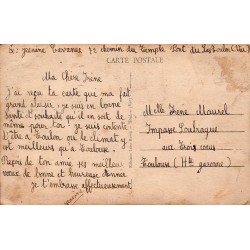 Ex: Jeanine Tervanze 72 chemin du Temple Pont du Las Toulon (Var
CARTE POSTALE
Ma Chère Irène
J'ai reçu ta carte qui m'a fait
grand plaisir, je suis en bonne
Santé et souhaite qu'il en soit de
même pour toi. je suis contente
d'être à Toulon, où le climat y
est meilleurs qu'à Toulouse.
Reçois de ton amie ses meilleurs
vœux de bonne et heureuse Année.
Je t'embrasse affectueusement
Jeanine
Mlle Irène Maurel
Impasse
aux Trois cocus
Toulouse (Hte garonne)